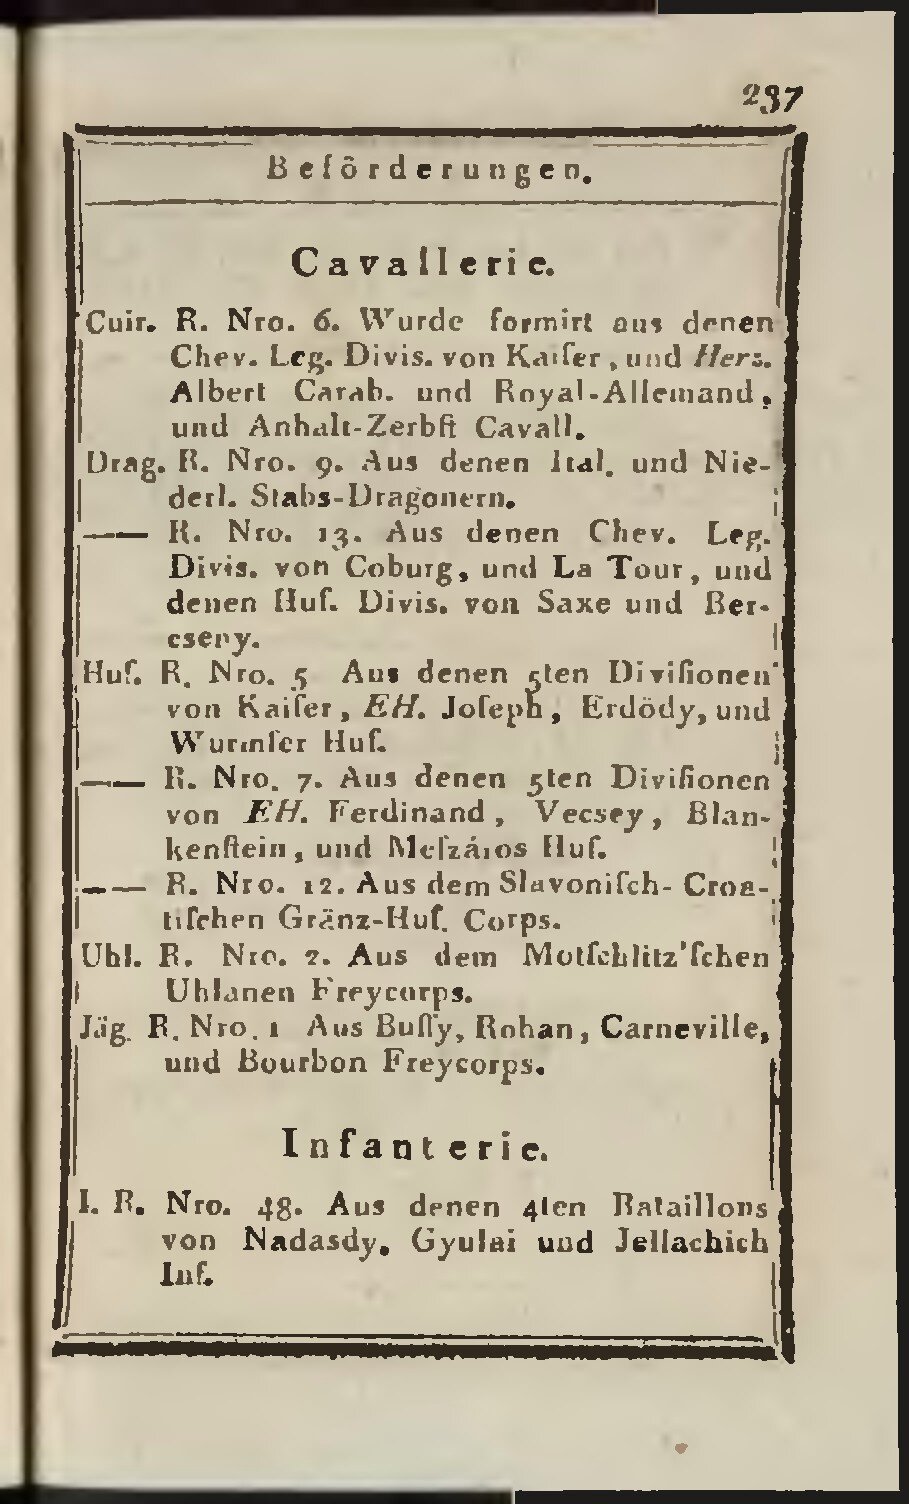 237
Beförderungen.
Cavallerie.
Cuir. R. Nro. 6. Wurde formirt aus denen
Chev. Leg. Divis. von Kaiſer, und Herz.
Albert Carab. und Royal-Allemand,
und Anhalt-Zerbſt Cavall.
Drag. R. Nro. 9. Aus denen Ital. und Nie-
derl. Stabs-Dragonern.
—— R. Nro. 13. Aus denen Chev. Leg.
Divis. von Coburg, und La Tour, und
denen Huſ. Divis. von Saxe und Ber-
cseny.
Huſ. R. Nro. 5 Aus denen 5ten Diviſionen
von Kaiſer, EH. Joſeph, Erdödy, und
Wurmſer Huſ.
—— R. Nro. 7. Aus denen 5ten Diviſionen
von EH. Ferdinand, Vecsey, Blan-
kenſtein, und Meſzáros Huſ.
—— R. Nro. 12. Aus dem Slavoniſch-Croa-
tiſchen Gränz-Huſ. Corps.
Uhl. R. Nro. 2. Aus dem Motſchlitz'ſchen
Uhlanen Freycorps.
Jäg. R. Nro. 1 Aus Buſſy, Rohan, Carneville,
und Bourbon Freycorps.
Infanterie.
I. R. Nro. 48. Aus denen 4ten Bataillons
von Nadasdy, Gyulai und Jellachich
Inf.